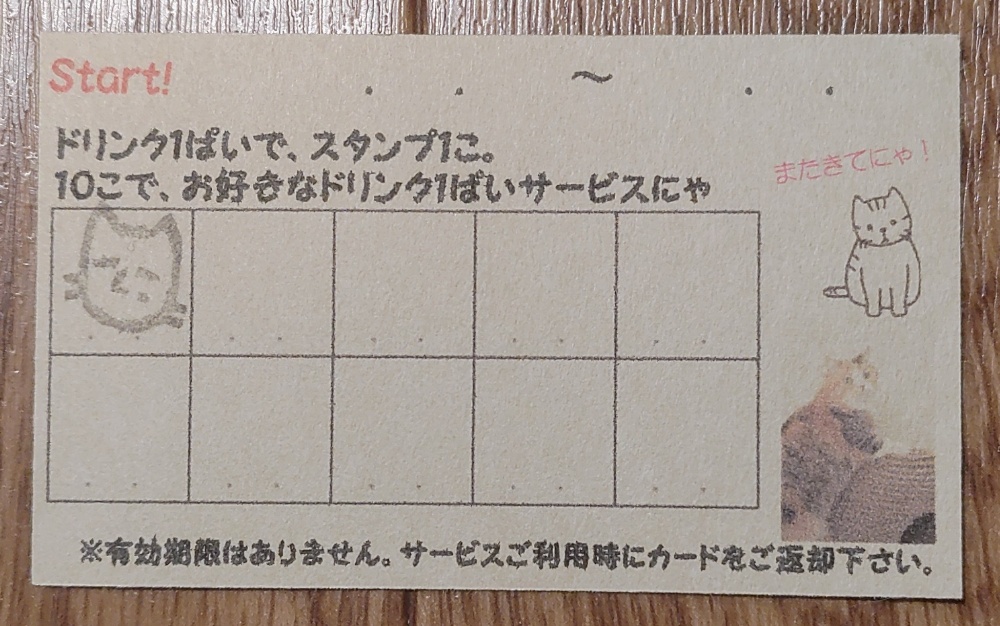 Start! . . ～ . .
ドリンク1ぱいで、スタンプ1こ。
10こで、お好きなドリンク1ぱいサービスにゃ
またきてにゃ！
※有効期限はありません。サービスご利用時にカードをご返却下さい。